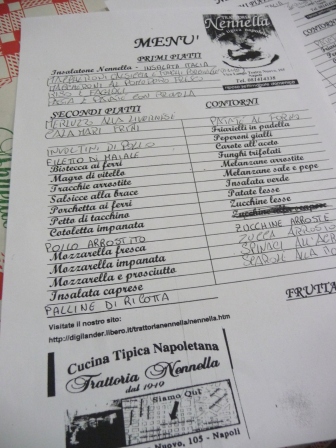 MENU'
Nennella
PRIMI PIATTI
Insalatone Nennella - INSALATA ITALIA
RISO E FAGIOLI
PASTA E PATATE CON PROVOLA
SECONDI PIATTI
CONTORNI
MERLUZZO ALLA LIVORNESE
PATATE AL FORNO
CALAMARI FRITTI
Friarielli in padella
INVOLTINI DI POLLO
Peperoni gialli
FILETTO DI MAIALE
Carote all'aceto
Bistecca ai ferri
Funghi trifolati
Magro di vitello
Melanzane arrostite
Tracchie arrostite
Melanzane sale e pepe
Salsicce alla brace
Insalata verde
Porchetta ai ferri
Patate lesse
Petto di tacchino
Zucchine lesse
Cotoletta impanata
POLLO ARROSTITO
ZUCCHINE ARROSTITE
Mozzarella fresca
ZUCCA ARROSTITO
Mozzarella impanata
SPINACI ALL'AGRO
Mozzarella e prosciutto
Insalata caprese
PALLINE DI RICOTTA
FRUTTA
Visitate il nostro sito:
http://digilander.libero.it/trattorianennella/nennella.htm
Cucina Tipica Napoletana
Trattoria Nennella
dal 1949
Siamo Qui
Nuovo, 105 - Napoli